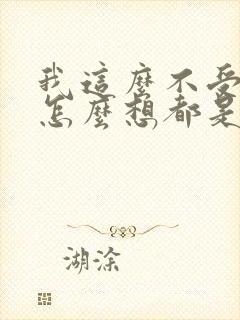 我這麼不受
怎麼想都是
湖涂